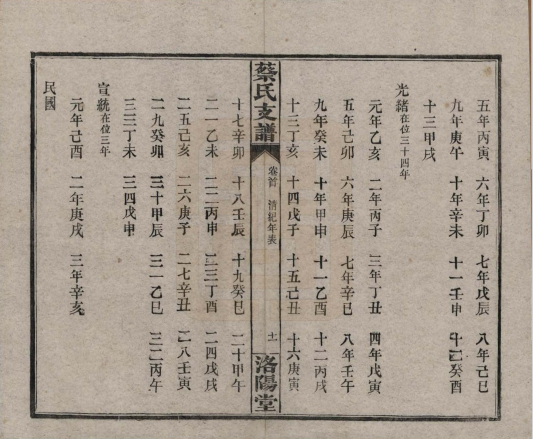 五年丙寅 六年丁卯 七年戊辰 八年己巳
九年庚午 十年辛未 十一壬申 十二癸酉
十三甲戌
光緒在位三十四年
元年乙亥 二年丙子 三年丁丑 四年戊寅
五年己卯 六年庚辰 七年辛巳 八年壬午
九年癸未 十年甲申 十一乙酉 十二丙戌
十三丁亥 十四戊子 十五己丑 十六庚寅
蔡氏支譜 卷首 清紀年表 十一 洛陽堂
十七辛卯 十八壬辰 十九癸巳 二十甲午
二一乙未 二二丙申 二三丁酉 二四戊戌
二五己亥 二六庚子 二七辛丑 二八壬寅
二九癸卯 三十甲辰 三一乙巳 三二丙午
三三丁未 三四戊申
宣統在位三年
元年己酉 二年庚戌 三年辛亥
民國